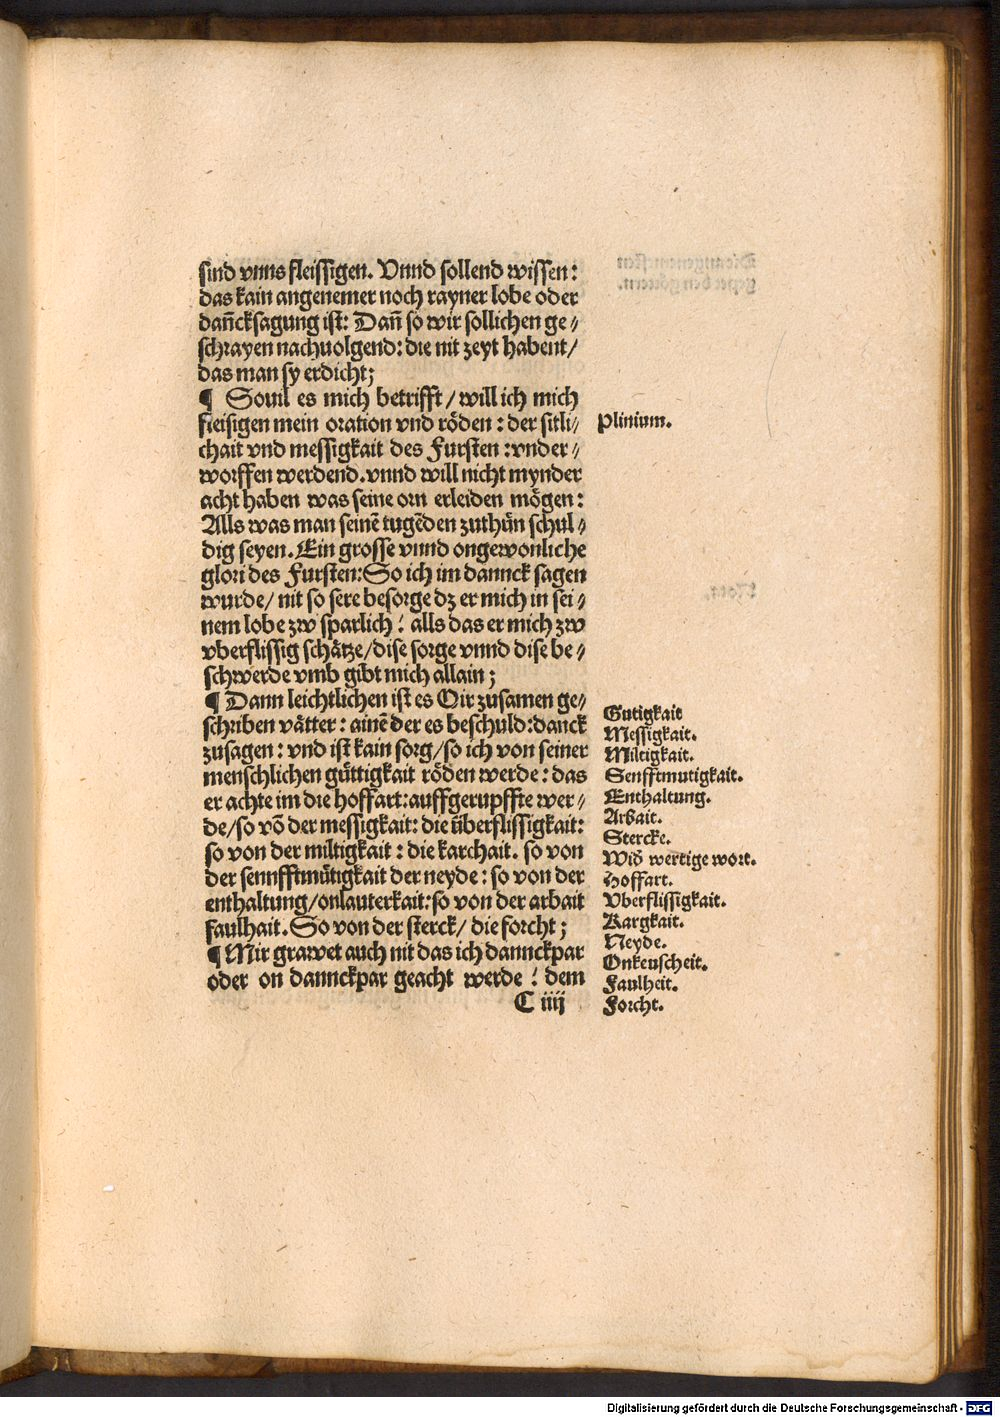 sind vnns fleissigen. Vnnd sollend wissen:
das kain angenemer noch rayner lobe oder
dan̄cksagung ist: Dan̄ so wir sollichen ge⸗
schrayen nachuolgend: die nit zeyt habent/
das man sy erdicht;
¶ Souil es mich betrifft / will ich mich
fleisigen mein oration vnd röden : der sitli⸗
chait vnd messigkait des Fursten :vnder⸗
worffen werdend. vnnd will nicht mynder
acht haben was seine orn erleiden mögen:
Alls was man seinē tugēden zuthün schul⸗
dig seyen. Ein grosse vnnd ongewonliche
glori des Fursten: So ich im dannck sagen
wurde/ nit so sere besorge dz er mich in sei⸗
nem lobe zw sparlich! alls das er mich zw
vberflissig schätze/dise sorge vnnd dise be⸗
schwerde vmb gibt mich allain ;
¶ Dann leichtlichen ist es Oir zusamen ge⸗
schriben vätter : ainē der es beschuld: danck
zusagen : vnd ist kain sorg/so ich von seiner
menschlichen güttigkait röden werde : das
er achte im die hoffart: auffgerupffte wer⸗
de/so vō der messigkait: die überflissigkait:
so von der miltigkait : die karchait. so von
der sennfftmütigkait der neyde : so von der
enthaltung/onlauterkait: so von der arbait
faulhait. So von der sterck/ die forcht ;
¶ Mir grawet auch nit das ich dannckpar
oder on dannckpar geacht werde ! dem
C iiij
Plinium.
Gutigkait
Messigkait.
Miltigkait.
Senfftmutigkait.
Enthaltung.
Arbait.
Stercke.
Wid' wertige wort.
Hoffart.
Vberflissigkait.
Kargkait.
Neyde.
Onkeuscheit.
Faulheit.
Forcht.
Digitalisierung gefördert durch die Deutsche Forschungsgemeinschaft - DFG